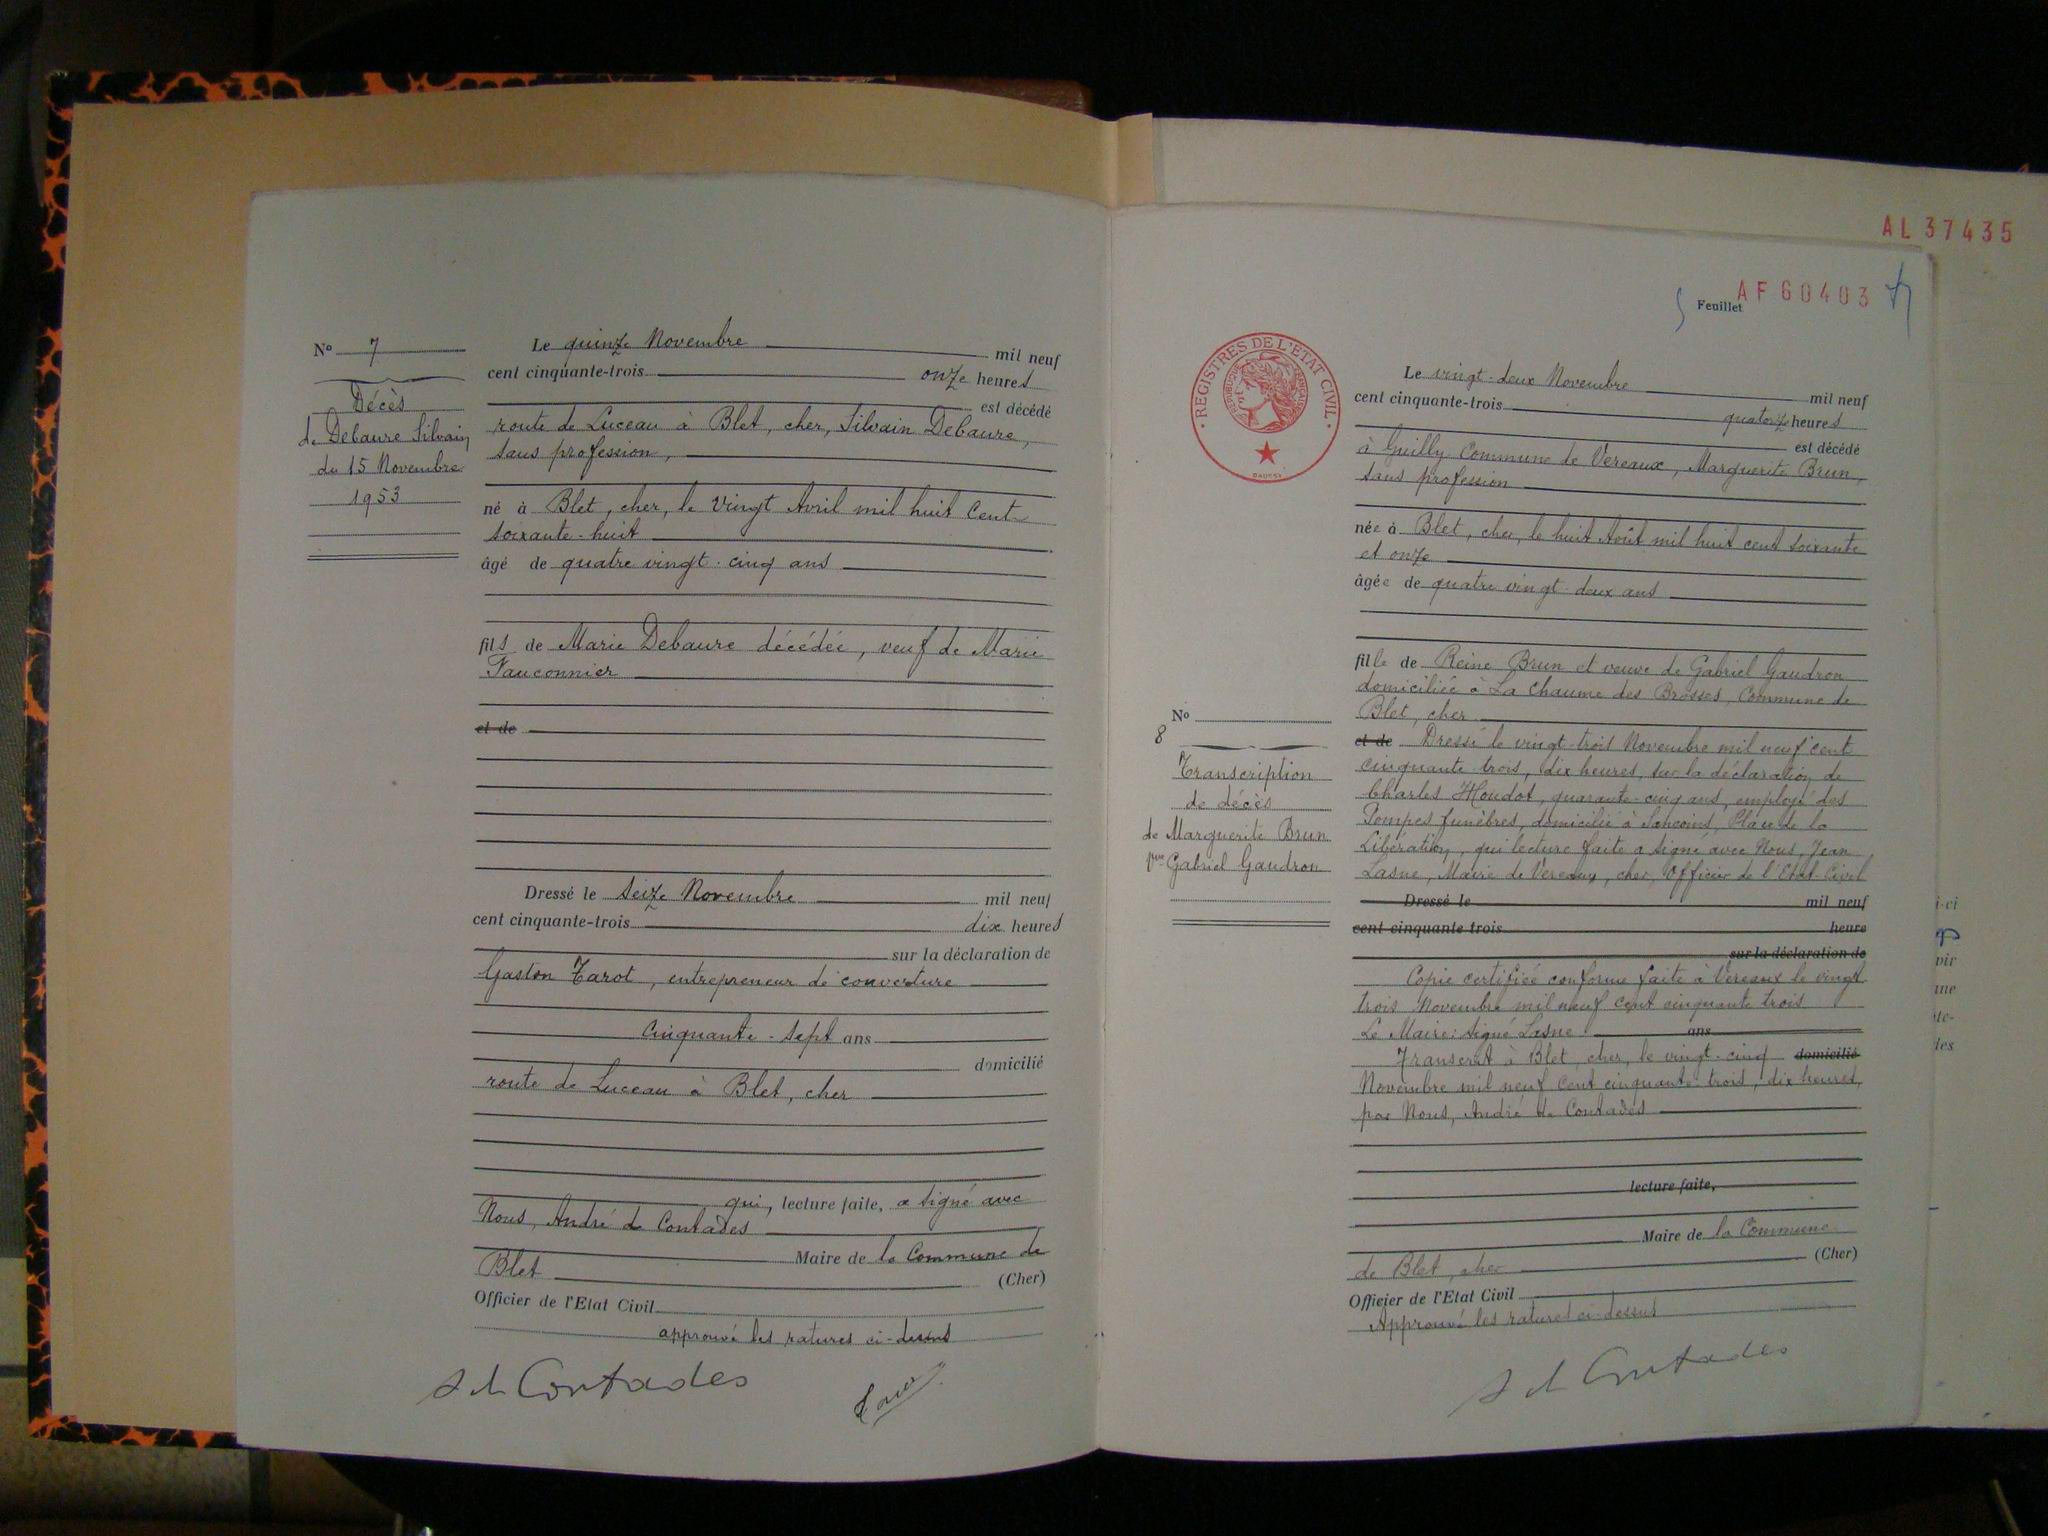 No 7
Décès
de Debaure Silvain
du 15 Novembre
1953
Le quinze Novembre mil neuf
cent cinquante-trois onze heures
est décédé
route de Luceau à Blet, cher, Silvain Debaure,
sans profession,
né à Blet, cher, le vingt Avril mil huit cent
soixante-huit
âgé de quatre vingt-cinq ans
fils de Marie Debaure décédée, veuf de Marie
Fauconnier
et de
Dressé le seize Novembre mil neuf
cent cinquante-trois dix heures
sur la déclaration de
Gaston Tarot, entrepreneur de couverture
cinquante-sept ans
domicilié
route de Luceau à Blet, cher
qui, lecture faite, a signé avec
Nous, André de Contades
Maire de la Commune de
Blet (Cher)
Officier de l'Etat Civil
approuvé les ratures ci-dessus
A de Contades
AL 37435
AF 60403
Feuillet
REGISTRES DE L'ÉTAT CIVIL
RÉPUBLIQUE FRANÇAISE
Le vingt-deux Novembre mil neuf
cent cinquante-trois quatorze heures
est décédé
à Guilly Commune de Vereaux, Marguerite Brun,
sans profession
née à Blet, cher, le huit Août mil huit cent soixante
et onze
âgée de quatre vingt-deux ans
fille de Reine Brun et veuve de Gabriel Gaudron
domiciliée à La Chaume des Brosses, Commune de
Blet, cher
No 8
Transcription
de décès
de Marguerite Brun
Vve Gabriel Gaudron
et de Dressé le vingt-trois Novembre mil neuf cent
cinquante trois, dix heures, sur la déclaration de
Charles Houdot, quarante-cinq ans, employé des
Pompes funèbres, domicilié à Sancoins, Place de la
Libération, qui lecture faite a signé avec Nous, Jean
Lasne, Maire de Vereaux, cher, Officier de l'Etat-Civil
Dressé le mil neuf
cent cinquante-trois heure
sur la déclaration de
Copie certifiée conforme faite à Vereaux le vingt
trois Novembre mil neuf cent cinquante trois
Le Maire: signé Lasne. ans
Transcrit à Blet, cher, le vingt-cinq domicilié
Novembre mil neuf cent cinquante-trois, dix heures,
par Nous, André de Contades
lecture faite,
Maire de la Commune
de Blet, cher (Cher)
Officier de l'Etat Civil
Approuvé les ratures ci-dessus
A de Contades